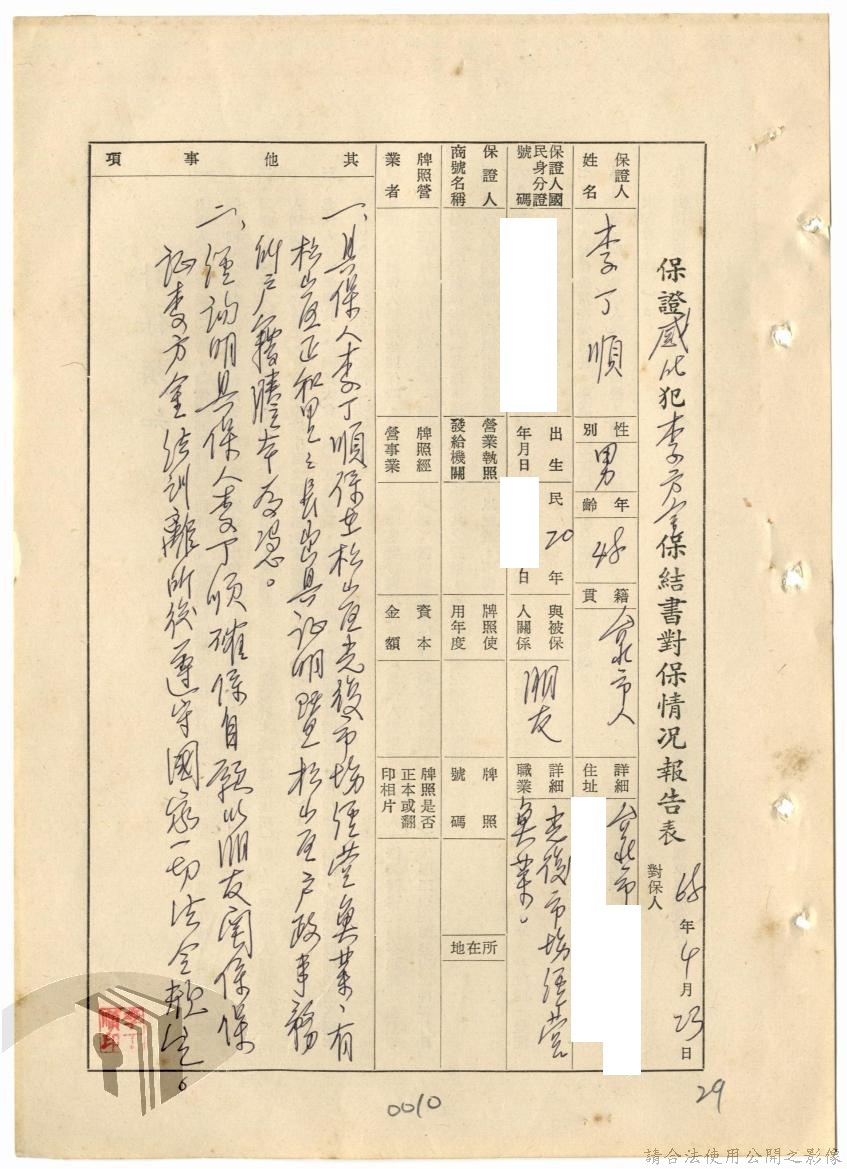 保證感化犯李方全保結書對保情況報告表
對保人
年4月23日
保證人姓名 李丁順
性別 男
年齡
籍貫 台北市人
詳細住址 台北市
保證人國民身分證號碼
出生年月日 民20年 日
與被保人關係 朋友
詳細職業 光復市場經營魚業。
保證人商號名稱
營業執照發給機關
牌照使用年度
牌照號碼
所在地
牌照營業者
牌照經營事業
資本金額
牌照是否正本或翻印相片
其他事項
一、具保人李丁順保在松山區光復市場經營魚業、有
松山區正和里里長出具証明暨松山區戶政事務
所戶籍謄本為憑。
二、經詢明具保人李丁順確係自願以朋友關係保
証李方全結訓離所後遵守國家一切法令規定。
李丁順印
0010
29
請合法使用公開之影像